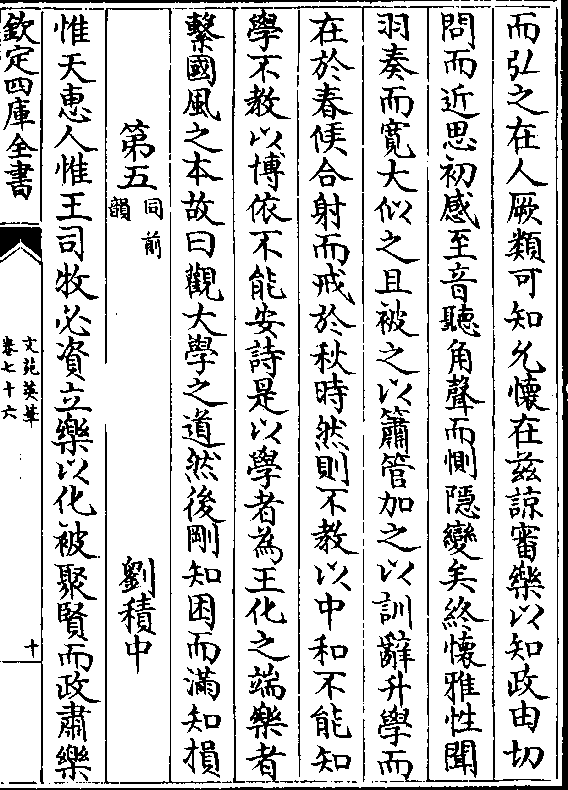 而弘之在人厥類可知允懷在兹諒審樂以知政由切
問而近思初感至音聽角聲而惻隱變矣終懷雅性聞
羽奏而寛大似之且被之以簫管加之以訓辭升學而
在於春候合射而戒於秋時然則不教以中和不能知
學不教以博依不能安詩是以學者為王化之端樂者
繫國風之本故曰觀大學之道然後剛知困而滿知損
第五同前韻 劉積中
惟天惠人惟王司牧必資立樂以化被聚賢而政肅樂
欽定四庫全書
文苑英華
卷七十六
十